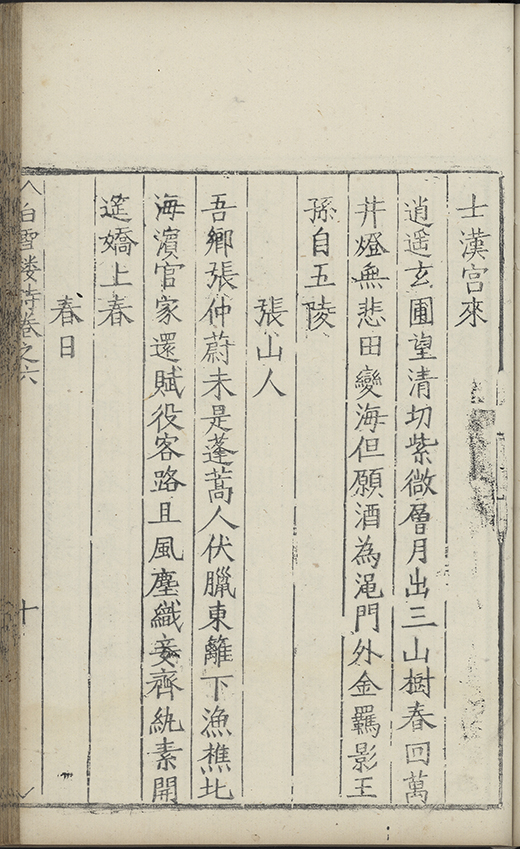 士漢宮來
逍遥玄圃望清切紫微層月出三山樹春回萬
井燈無悲田變海但願酒為澠門外金羈影王
孫自五陵
張山人
吾鄉張仲蔚未是蓬蒿人伏臘東籬下漁樵北
海濵官家還賦役客路且風塵織妾齊紈素開
筵嬌上春
春日
白雪楼詩卷之六
十